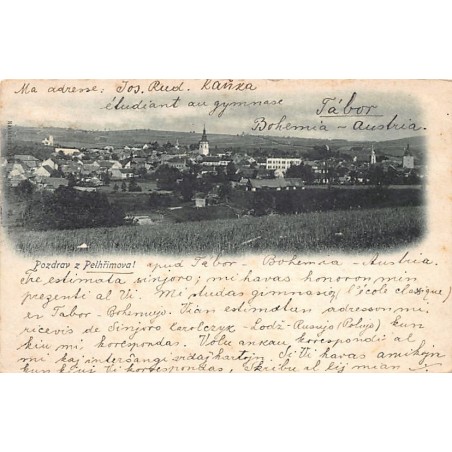 Ma adresse: Jos. Rud. Kaňka
étudiant au gymnase
Tábor
Bohemia - Austria.
Pozdrav z Pelhřimova!
apud Tábor - Bohemia - Austria.
Tre estimata sinjoro; mi havas honoron min
prezenti al Vi. Mi studas gimnasio (l'école classique)
en Tabor - Bohemujo. Vian estimatan adresson mi
ricevis de Sinjoro Carolczyk - Łodź - Rusujo (Polujo) kun
kiu mi korespondas. Volu ankau korespondi al
mi kaj interŝanĝi vidajkartojn. Si Vi havas amikojn
kun kiuj Vi korespondas, skribu al ilj mian